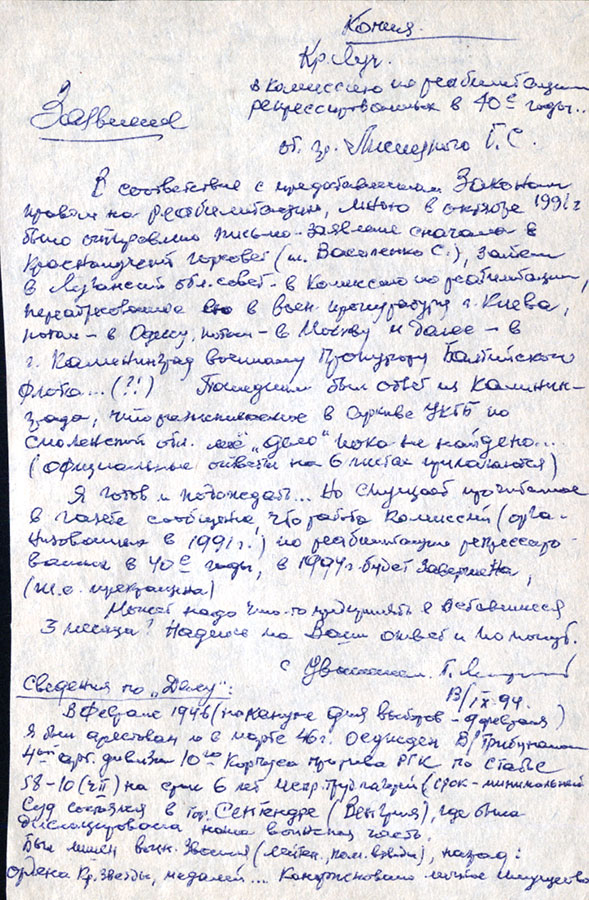 Копия.
Кр. Луч.
в комиссию по реабилитации
репрессированных в 40е годы..
Заявление
от гр. Г. С.
В соответствие с предоставленным Законом
правом на реабилитацию, мною в октябре 1991 г
было отправлено письмо-заявление сначала в
Краснолучский горсовет (т. Василенко С.), затем
в Луганский обл. совет - в Комиссию по реабилитации,
переадресованное в воен. прокуратуру г. Киева,
потом - в Одессу, потом - в Москву и далее - в
г. Калининград военному Прокурору Балтийского
флота... (?!) Последним был ответ из Калинин-
града, что разыскиваемое в Архиве УКГБ по
Смоленской обл. моё „дело" пока не найдено...
(официальные ответы на 6 листах прилагаются)
Я готов и подождать... Но смущает прочитанное
в газете сообщение, что работа Комиссий (орга-
низованных в 1991 г.) по реабилитации репрессиро-
ванных в 40е годы, в 1994 г. будет завершена,
(т.е. прекращена)
Может надо что-то предпринять в оставшиеся
3 месяца? Надеюсь на Ваш ответ и помощь.
С уважением. Г.
13/IX-94.
Сведения по „Делу":
В феврале 1946 (накануне дня выборов - 9 февраля)
Я был арестован и в марте 46 г. осужден В/Трибуналом
4ой арт. дивизии 10го Корпуса прорыва РГК по статье
58-10 (чII) на срок 6 лет исир. труд. лагерей (срок - минимальный
Суд состоялся в гор. Сентендре (Венгрия), где была
дислоцирована наша воинская часть.
Был лишен воин. звания (лейтен., ком. взвода), наград:
ордена Кр. звезды, медалей... Конфисковано личное имущество